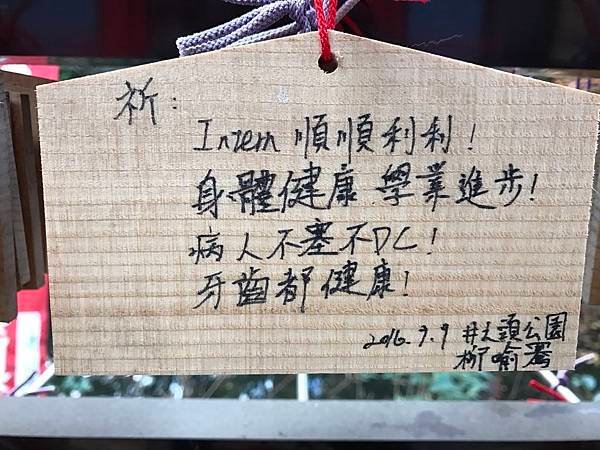 祈:
Intern 順順利利!
身體健康 學業進步!
病人不塞不DC!
牙齒都健康!
2016.9.9 井之頭公園
柳喻